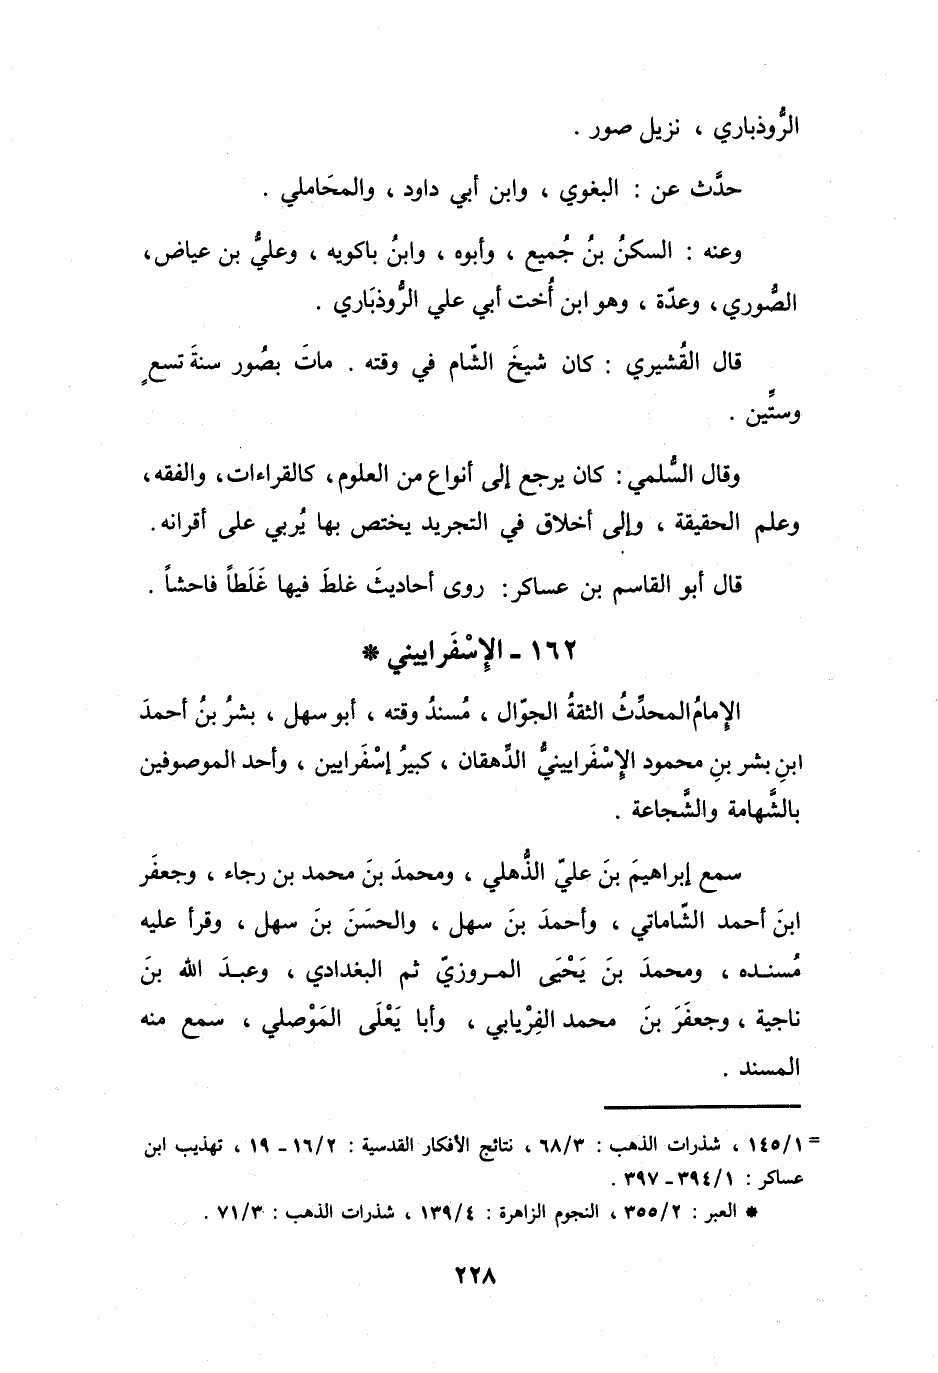 الرُّوذباري ، نزيل صور .
حدَّث عن : البغوي ، وابن أبي داود ، والمحَاملي .
وعنه : السكنُ بنُ جُميع ، وأبوه ، وابنُ باكويه ، وعليُّ بن عياض،
الصُّوري، وعدّة ، وهو ابن أُخت أبي علي الرُّوذبَاري .
قال القُشيري : كان شيخَ الشّام في وقته . ماتَ بصُور سنةَ تسعٍ
وستِّين .
وقال السُّلمي: كان يرجع إلى أنواع من العلوم، كالقراءات، والفقه،
وعلم الحقيقة ، وإلى أخلاق في التجريد يختص بها يُربي على أقرانه.
قال أبو القاسم بن عساكر: روى أحاديثَ غلطَ فيها غَلَطاً فاحشاً .
١٦٢ - الإِسْفَراييني *
الإِمامُ المحدِّثُ الثقةُ الجوّال ، مُسندُ وقته ، أبو سهل ، بشرُ بنُ أحمدَ
ابنِ بشر بنِ محمود الإِسْفَرايينيُّ الدِّهقان ، كبيرُ إسْفَرايين ، وأحد الموصوفين
بالشَّهامة والشَّجاعة .
سمع إبراهيمَ بنَ عليّ الذُّهلي ، ومحمدَ بنَ محمد بن رجاء ، وجعفَر
ابنَ أحمد الشّاماتي ، وأحمدَ بنَ سهل ، والحسَنَ بنَ سهل ، وقرأ عليه
مُسنده ، ومحمدَ بنَ يَحْيَى المروزيّ ثم البغدادي ، وعبدَ الله بنَ
ناجية ، وجعفَرَ بنَ محمد الفِرْيابي ، وأبا يَعْلَى المَوْصلي ، سمع منه
المسند .
= ١٤٥/١ ، شذرات الذهب : ٦٨/٣ ، نتائج الأفكار القدسية : ١٦/٢ - ١٩ ، تهذيب ابن
عساكر : ٣٩٤/١ - ٣٩٧ .
* العبر : ٣٥٥/٢ ، النجوم الزاهرة : ١٣٩/٤ ، شذرات الذهب : ٧١/٣ .
٢٢٨